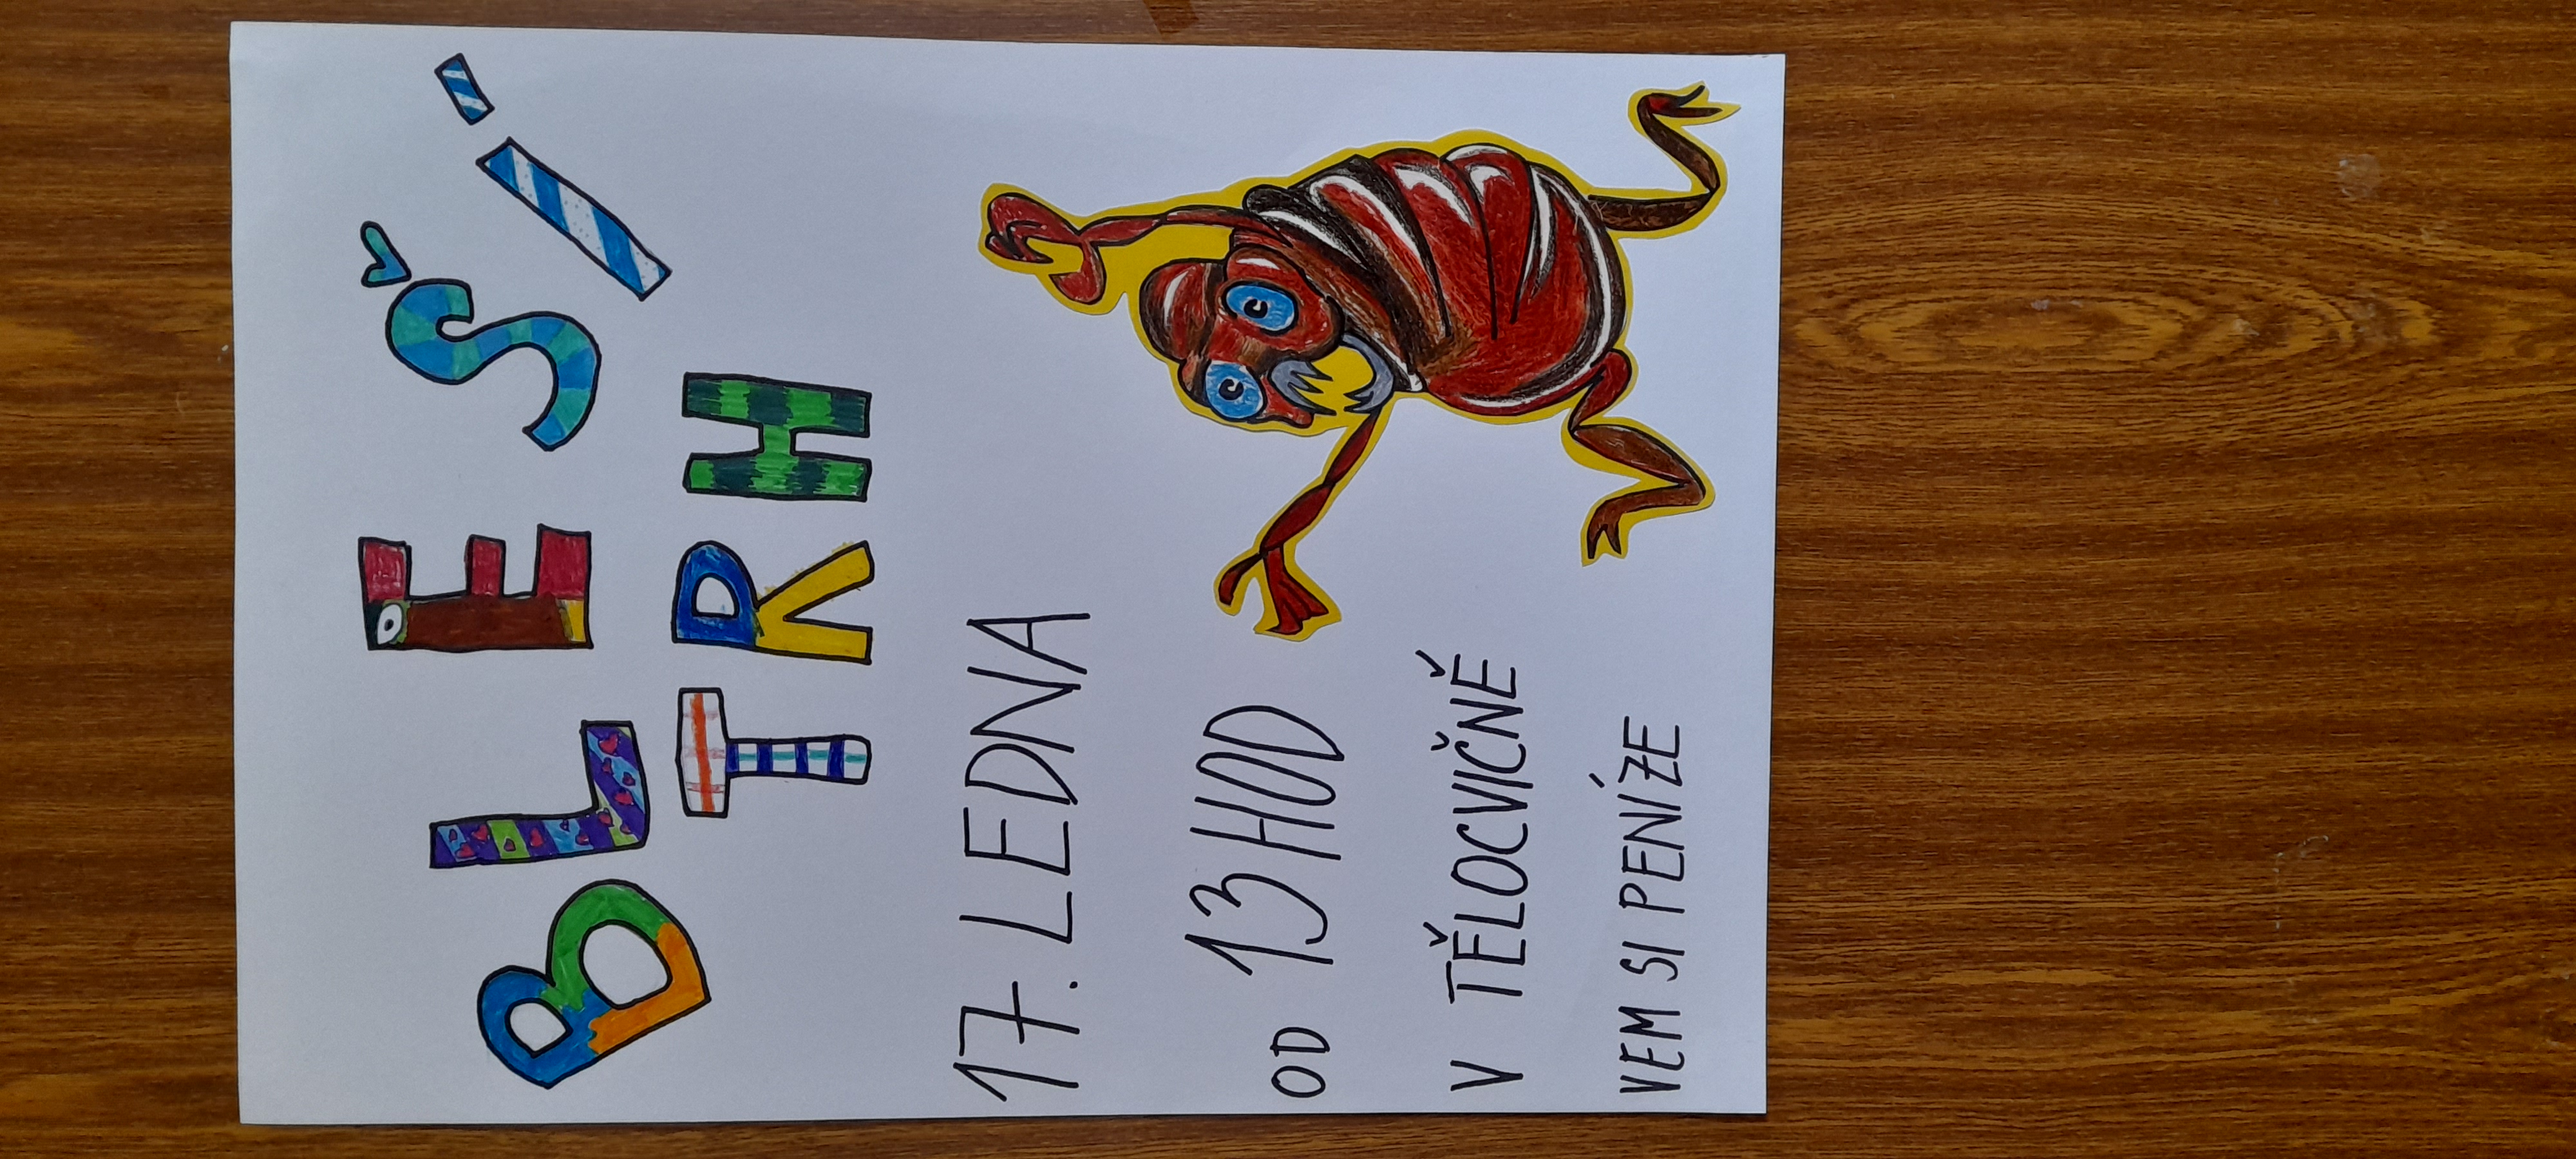 BLEŠÍ
TRH
17. LEDNA
OD 13 HOD
V TĚLOCVIČNĚ
VEM SI PENÍZE